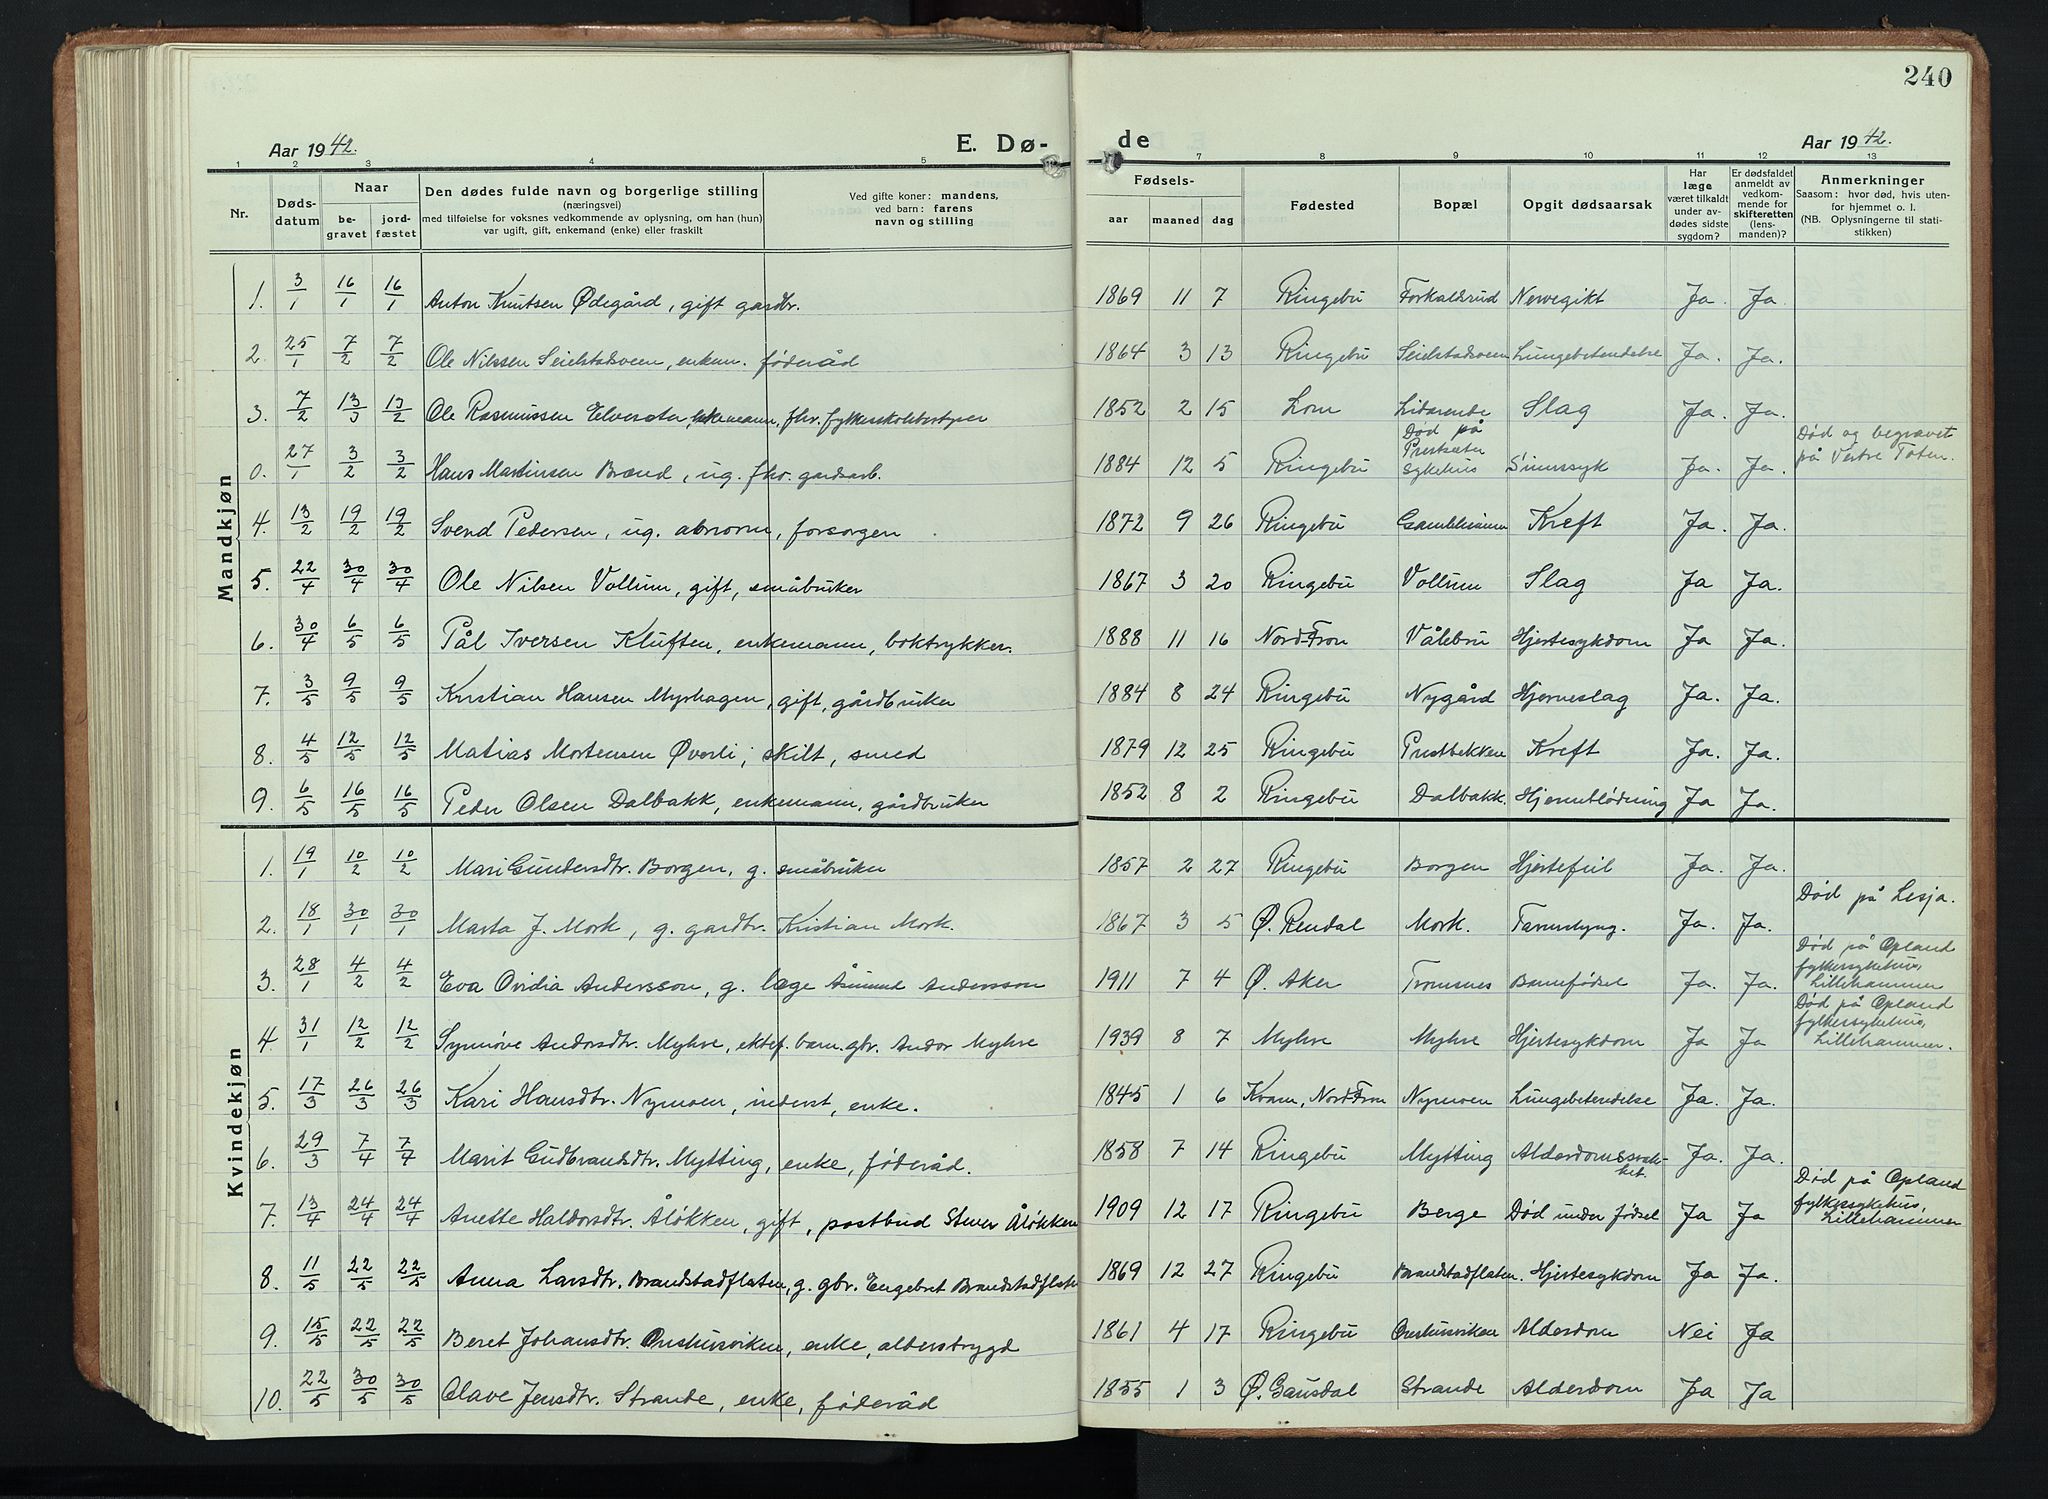 240
Aar 1942. E. Dø-de Aar 1942.
1 2 3 4 5 7 8 9 10 11 12 13
Nr. Dødsdatum Naar begravet jordfæstet Den dødes fulde navn og borgerlige stilling (næringsvei) med tilføielse for voksnes vedkommende av oplysning, om han (hun) var ugift, gift, enkemand (enke) eller fraskilt Ved gifte koner: mandens, ved barn: farens navn og stilling Fødsels- aar maaned dag Fødested Bopæl Opgit dødsaarsak Har læge været tilkaldt under avdødes sidste sygdom? Er dødsfaldet anmeldt av vedkommende for skifteretten (lensmanden)? Anmerkninger Saasom: hvor død, hvis utenfor hjemmet o. l. (NB. Oplysningerne til statistikken)
Mandkjøn
1. 3/1 16/1 16/1 Anton Knutsen Ødegård, gift gardbr. 1869 11 7 Ringebu Forkalsrud Nervegikt Ja. Ja.
2. 25/1 7/2 7/2 Ole Nilssen Seielstadsveen, enkem. føderåd 1864 3 13 Ringebu Seielstadsveen Lungebetendelse Ja. Ja.
3. 7/2 13/3 13/2 Ole Rasmussen Elvesæter, enkemann, fhv. fylkesskolebestyrer 1852 2 15 Lom Lidarende Slag Ja. Ja.
0. 27/1 3/2 3/2 Hans Martinsen Brænd, ug. fhv. gardsarb. 1884 12 5 Ringebu Død på Prestseter sykehus Sinnssyk Ja. Ja. Død og begravet på Vestre Toten.
4. 13/2 19/2 19/2 Svend Pedersen, ug. abnorm, forsorgen. 1872 9 26 Ringebu Gamlehimm Kreft Ja. Ja.
5. 22/4 30/4 30/4 Ole Nilsen Vollum, gift, småbruker 1867 3 20 Ringebu Vollum Slag Ja Ja.
6. 30/4 6/5 6/5 Pål Iversen Kluften, enkemann, boktrykker. 1888 11 16 Nord-Fron Vålebru Hjertesykdom Ja Ja.
7. 3/5 9/5 9/5 Kristian Hansen Myrhagen, gift, gårdbruker 1884 8 24 Ringebu Nygård Hjerneslag Ja. Ja.
8. 4/5 12/5 12/5 Matias Mortensen Øverli, skilt, smed 1879 12 25 Ringebu Prestbekken Kreft Ja. Ja.
9. 6/5 16/5 16/5 Peder Olsen Dalbakk, enkemann, gårdbruker 1852 8 2 Ringebu Dalbakk. Hjerneblødning Ja Ja.
Kvindekjøn
1. 19/1 10/2 10/2 Mari Gundersdtr. Borgen, g. småbruker 1857 2 27 Ringebu Borgen Hjertefeil Ja. Ja.
2. 18/1 30/1 30/1 Marta J. Mork, g. gardbr. Kristian Mork. 1867 3 5 Ø. Rendal Mork. Tarmslyng. Ja. Ja. Død på Lesja.
3. 28/1 4/2 4/2 Eva Ovidia Andersson, g. læge Åsmund Andersson 1911 7 4 Ø. Aker Tromsnes Barnefødsel Ja. Ja. Død på Opland fylkessykehus, Lillehammer
4. 31/1 12/2 12/2 Synnøve Andorsdtr. Myhre, ektef. barn. gbr. Andor Myhre 1939 8 7 Myhre Myhre Hjertesykdom Ja Ja Død på Opland fylkessykehus, Lillehammer.
5. 17/3 26/3 26/3 Kari Hansdtr. Nymoen, inderst, enke. 1845 1 6 Kvam, Nord-Fron Nymoen Lungebetendelse Ja. Ja.
6. 29/3 7/4 7/4 Marit Gudbrandsdtr. Mytting, enke, føderåd. 1858 7 14 Ringebu Mytting Alderdomssvakhet. Ja. Ja.
7. 13/4 24/4 24/4 Anette Haldorsdtr. Åløkken, gift, postbud Stener Åløkken 1909 12 17 Ringebu Berge Død under fødsel Ja Ja Død på Opland fylkessykehus, Lillehammer
8. 11/5 22/5 22/5 Anna Larsdtr. Brandstadflaten, g. gbr. Engebret Brandstadflaten 1869 12 27 Ringebu Brandstadflaten. Hjertesykdom Ja Ja.
9. 15/5 22/5 22/5 Beret Johansdtr. Onshusviken, enke, alderstrygd 1861 4 17 Ringebu Onshusviken Alderdom Nei Ja
10. 22/5 30/5 30/5 Olave Jensdtr. Strande, enke, føderåd 1855 1 3 Ø. Gausdal Strande Alderdom Ja Ja